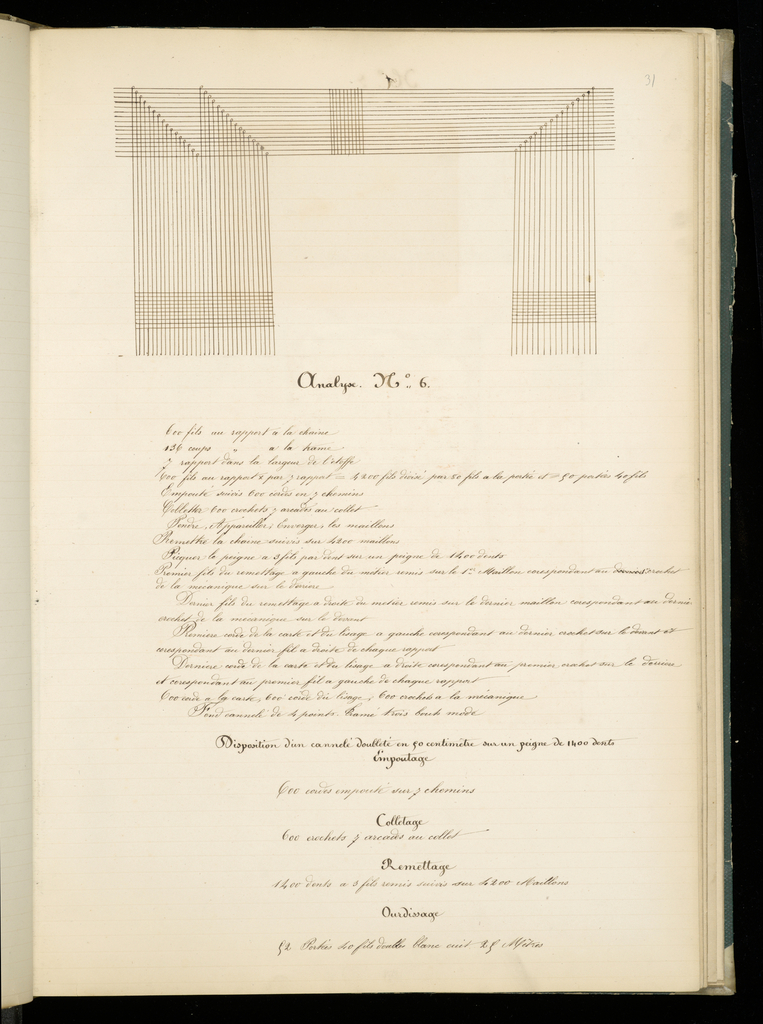 31
Analyse. No. 6.
600 fils un rapport a la chaine
136 coups " a la trame
7 rapport dans la largeur de l'étoffe
600 fils au rapport par 7 rapport = 4200 fils divisé par 80 fils a la portée et = 52 portées 40 fils
Empouté suivis 600 cordes en 7 chemins
Colletter 600 crochets 7 arcades au collet
Pendre, Appareiller, Enverger, les maillons
Remettre la chaine suivis sur 4200 maillons
Piquer le peigne a 3 fils par dent sur un peigne de 1400 dents
Premier fils du remettage a gauche du métier remis sur le 1er Maillon corespondant au crochet
de la mécanique sur le derriere
Dernier fils du remettage a droite du métier remis sur le dernier maillon corespondant au dernier
crochet de la mécanique sur le devant
Premiere corde de la carte et du lisage a gauche corespondant au dernier crochet sur le devant et
corespondant au dernier fil a droite de chaque rapport
Derniere corde de la carte et du lisage a droite corespondant au premier crochet sur le derriere
et corespondant au premier fil a gauche de chaque rapport
600 corde a la carte, 600 corde du lisage, 600 crochets a la mécanique
Fond cannelé de 4 points. Tramé trois bouts
Disposition d'un cannelé doubleté en 50 centimètre sur un peigne de 1400 dents
Empoutage
600 cordes empouté sur 7 chemins
Colletage
600 crochets 7 arcades au collet
Remettage
1400 dents a 3 fils remis suivis sur 4200 Maillons
Ourdissage
52 Portées 40 fils doubles blanc cuit 25 Mètres